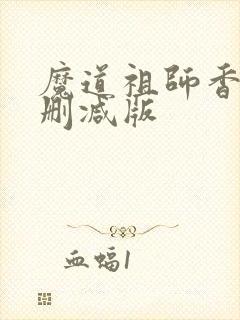 魔道祖師香
删减版
血蝠1